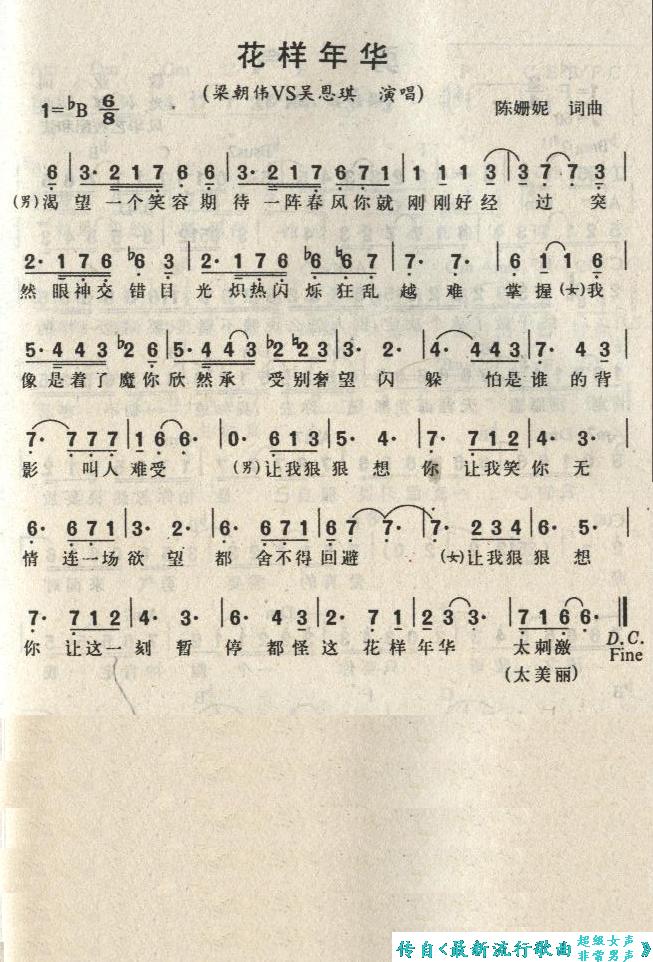 花样年华
(梁朝伟VS吴恩琪 演唱)
1=♭B 6/8
陈姗妮 词曲
6 | 3· 2 1 7 6 6 | 3· 2 1 7 6 7 1 | 1 1 1 3 | 3 7 7 3 |
(男)渴 望 一个笑容期 待 一阵春风你就 刚 刚好经 过 突
2· 1 7 6 ♭6 3 | 2· 1 7 6 ♭6 ♮6 7 | 7· 7· | 6 1 1 6 |
然 眼神交 错目 光 炽热闪 烁狂乱 越 难 掌握(女)我
5· 4 4 3 ♭2 6 | 5· 4 4 3 ♭2 ♭2 2 3 | 3· 2· | 4· 4 4 3 | 7· 4 3 |
像 是着了 魔你 欣 然承 受别奢望 闪 躲 怕是谁 的背
7· 7 7 7 | 1 6 6· | 0· 6 1 3 | 5· 4· | 7· 7 1 2 | 4· 3· |
影 叫人 难受 (男)让我狠 狠 想 你 让我笑 你 无
6· 6 7 1 | 3· 2· | 6· 6 7 1 | 6 7 7· | 7· 2 3 4 | 6· 5· |
情 连一场 欲 望 都 舍不得 回避 (女)让我狠 狠 想
7· 7 1 2 | 4· 3· | 6· 4 3 | 2· 7 1 | 2 3 3· | 7 1 6 6· ‖
你 让这一 刻 暂 停 都怪 这 花样 年华 太刺激
D.C.
Fine
(太美丽)
传自<最新流行歌曲 超级女声 非常男声》